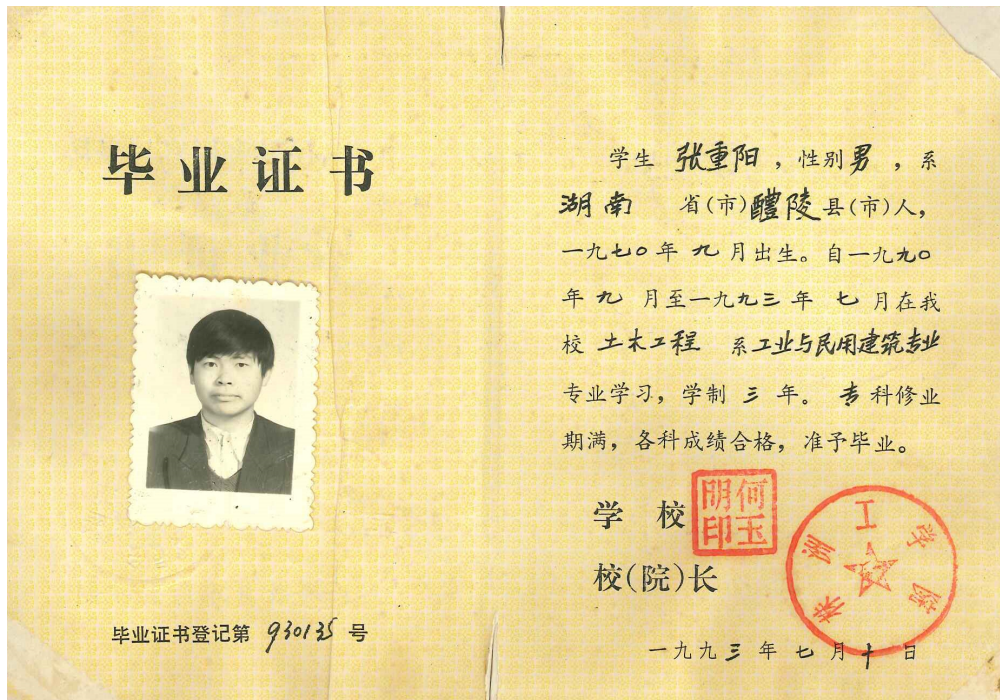 毕业证书
毕业证书登记第 930135 号
学生 张重阳，性别 男，系
湖南 省(市)醴陵县(市)人，
一九七〇年 九 月出生。自一九九〇
年 九 月至一九九三年 七 月在我
校 土木工程 系工业与民用建筑专业
专业学习，学制 三 年。 专 科修业
期满，各科成绩合格，准予毕业。
学 校
校(院)长
何玉明印
工学院
一九九三 年 七 月 十 日